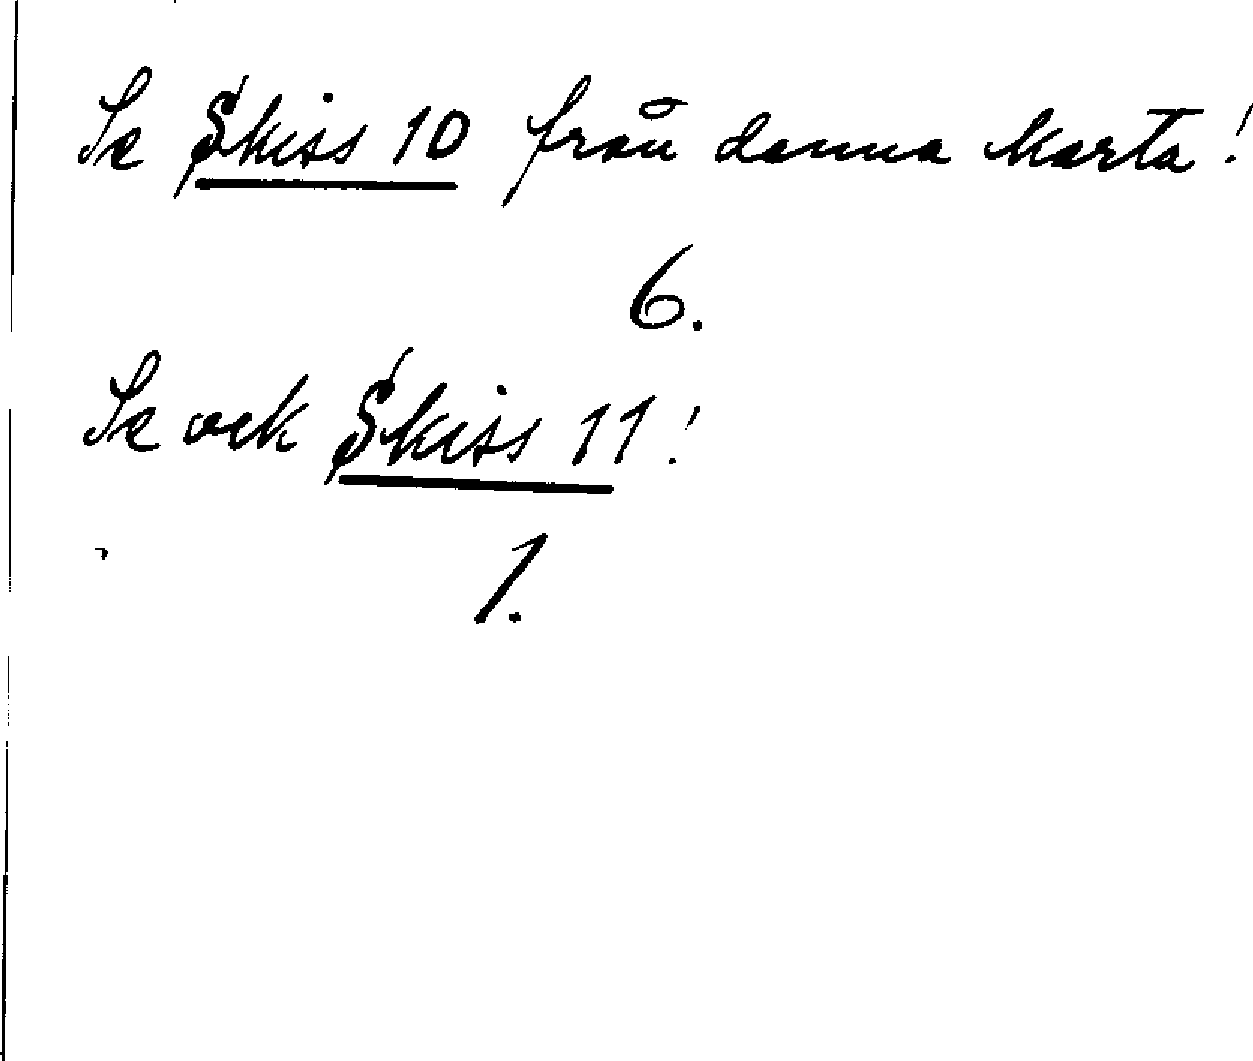 Se Skiss 10 från denna karta!
6.
Se ock Skiss 11!
1.